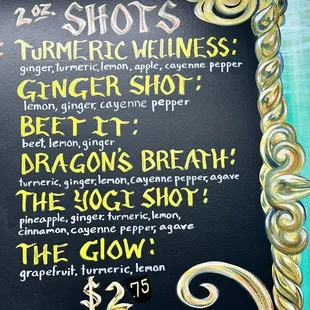 2 oz. SHOTS
TURMERIC WELLNESS:
ginger, turmeric, lemon, apple, cayenne pepper
GINGER SHOT:
lemon, ginger, cayenne pepper
BEET IT:
beet, lemon, ginger
DRAGON'S BREATH:
turmeric, ginger, lemon, cayenne pepper, agave
THE YOGI SHOT:
pineapple, ginger, turmeric, lemon,
cinnamon, cayenne pepper, agave
THE GLOW:
grapefruit, turmeric, lemon
$2.75